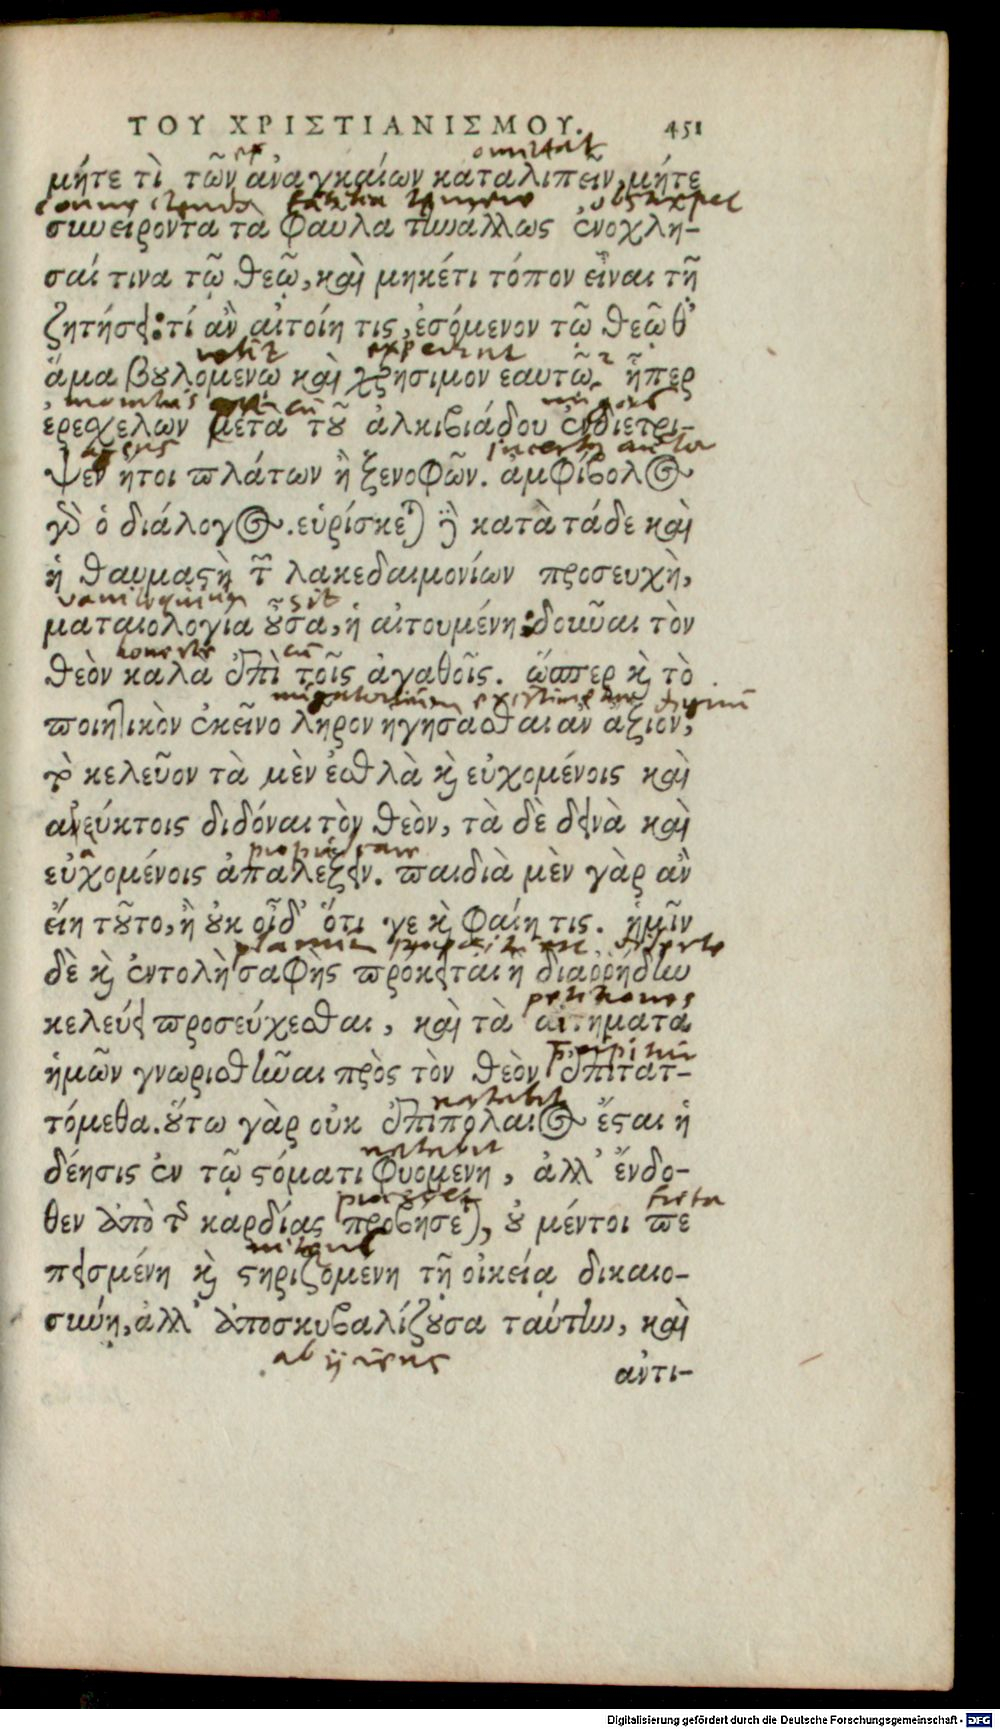 ΤΟΥ ΧΡΙΣΤΙΑΝΙΣΜΟΥ. 451
ex omittat
μήτε τὶ τῶν ἀναγκαίων καταλιπεῖν, μήτε
temere
συνείροντα τὰ φαῦλα τὴν ἄλλως ἐνοχλη-
σαί τινα τῷ θεῷ, καὶ μηκέτι τόπον εἶναι τῇ
ζητήσει: τί ἂν αἰτοίη τις, ἐσόμενον τῷ θεῷ θ’
velit expediunt
ἅμα βουλομένῳ καὶ χρήσιμον ἑαυτῷ. ἧπερ
ἐρεσχελῶν μετὰ τοῦ ἀλκιβιάδου ἐνδιέτρι-
agens incertus
ψεν ἤτοι πλάτων ἢ ξενοφῶν. ἀμφίβολος
γὰρ ὁ διάλογος. εὑρίσκεται γὰρ κατὰ τάδε καὶ
ἡ θαυμαστὴ τῶν λακεδαιμονίων προσευχὴ,
vaniloquium sit
ματαιολογία οὖσα, ἡ αἰτουμένη: δοῦναι τὸν
honeste cum
θεὸν καλὰ ἐπὶ τοῖς ἀγαθοῖς. ὥσπερ καὶ τὸ
dignum
ποιητικὸν ἐκεῖνο λῆρον ἡγήσασθαι ἂν ἄξιον,
τὸ κελεῦον τὰ μὲν ἐσθλὰ καὶ εὐχομένοις καὶ
ἀνεύκτοις διδόναι τὸν θεὸν, τὰ δὲ δεινὰ καὶ
εὐχομένοις ἀπαλέξειν. παιδιὰ μὲν γὰρ ἂν
εἴη τοῦτο, ἢ οὐκ οἶδ’ ὅτι γε καὶ φαίη τις. ἡμῖν
aperte
δὲ καὶ ἐντολὴ σαφὴς πρόκειται ἡ διαρρήδην
petitiones
κελεύει προσεύχεσθαι, καὶ τὰ αἰτήματα
ἡμῶν γνωρισθῆναι πρὸς τὸν θεὸν ἐπιτατ-
τόμεθα. οὕτω γὰρ οὐκ ἐπιπόλαιος ἔσται ἡ
δέησις ἐν τῷ στόματι φυομένη, ἀλλ’ ἔνδο-
freta
θεν ἀπὸ τῆς καρδίας προβήσεται, οὐ μέντοι πε
nitens
πεισμένη καὶ στηριζομένη τῇ οἰκείᾳ δικαιο-
σύνῃ, ἀλλ’ ἀποσκυβαλίζουσα ταύτην, καὶ
abijciens
ἀντι-
Digitalisierung gefördert durch die Deutsche Forschungsgemeinschaft - DFG